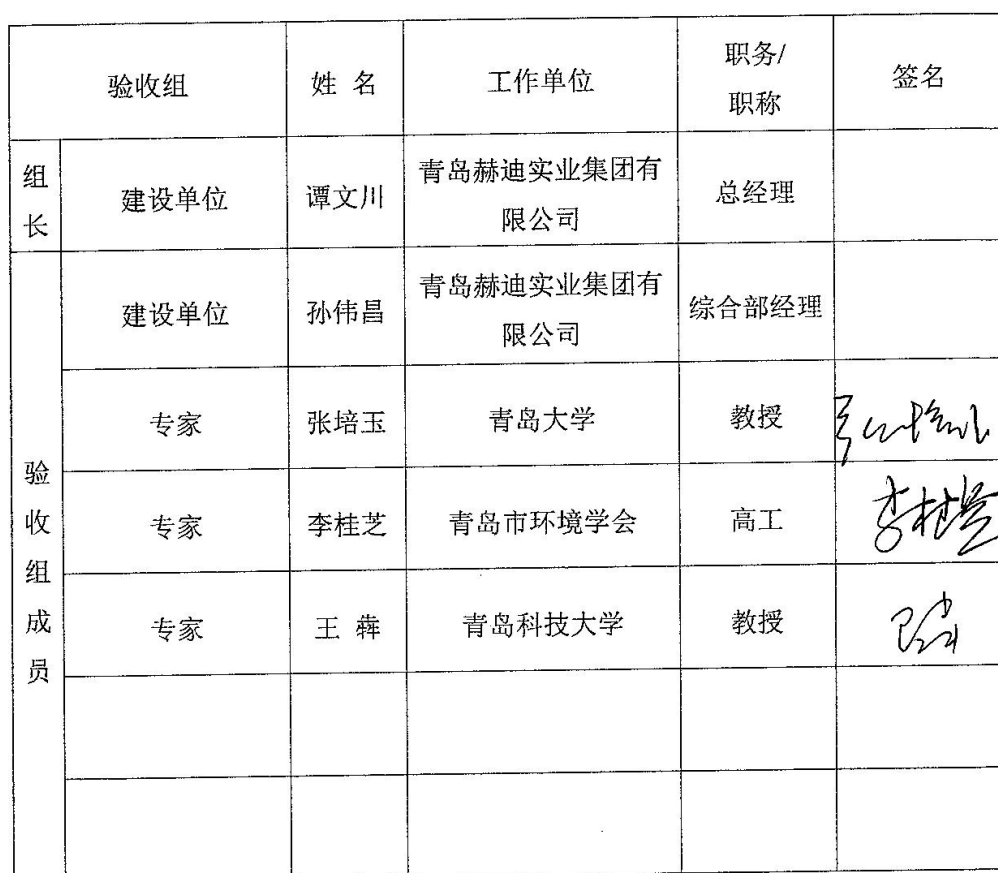 验收组 姓 名 工作单位 职务/职称 签名
组长 建设单位 谭文川 青岛赫迪实业集团有限公司 总经理
验收组成员
建设单位 孙伟昌 青岛赫迪实业集团有限公司 综合部经理
专家 张培玉 青岛大学 教授 张培玉
专家 李桂芝 青岛市环境学会 高工 李桂芝
专家 王 犇 青岛科技大学 教授